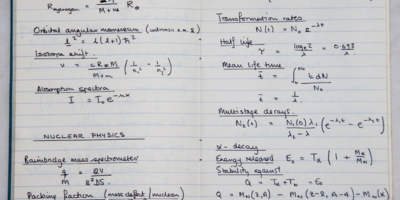 R hydrogen = M / M+m R∞
Orbital angular momentum (intrinsic s.a.m.)
l² = l(l+1) ħ²
Isotope shift
ν = cR∞M / M+m (1/n₁² - 1/n₂²)
Absorption spectra
I = I₀e^-μx
NUCLEAR PHYSICS
Bainbridge mass spectrometer
q/M = QV / B²DS
Packing fraction (mass defect/nucleon)
Transformation rates
N(t) = N₀e^-λt
Half life
τ = logₑ2 / λ = 0.693 / λ
Mean life time
t̄ = ∫₀^N₀ t dN / N₀
t̄ = 1/λ
Multistage decays
N₂(t) = N₁(0)λ₁ / λ₂ - λ₁ (e^-λ₁t - e^-λ₂t)
α - decay
Energy released E₀ = Tα (1 + Mα/MR)
Stability against
Q = Tα + TR = E₀
Q = MN(Z,A) - MN(Z-2, A-4) - MN(α)